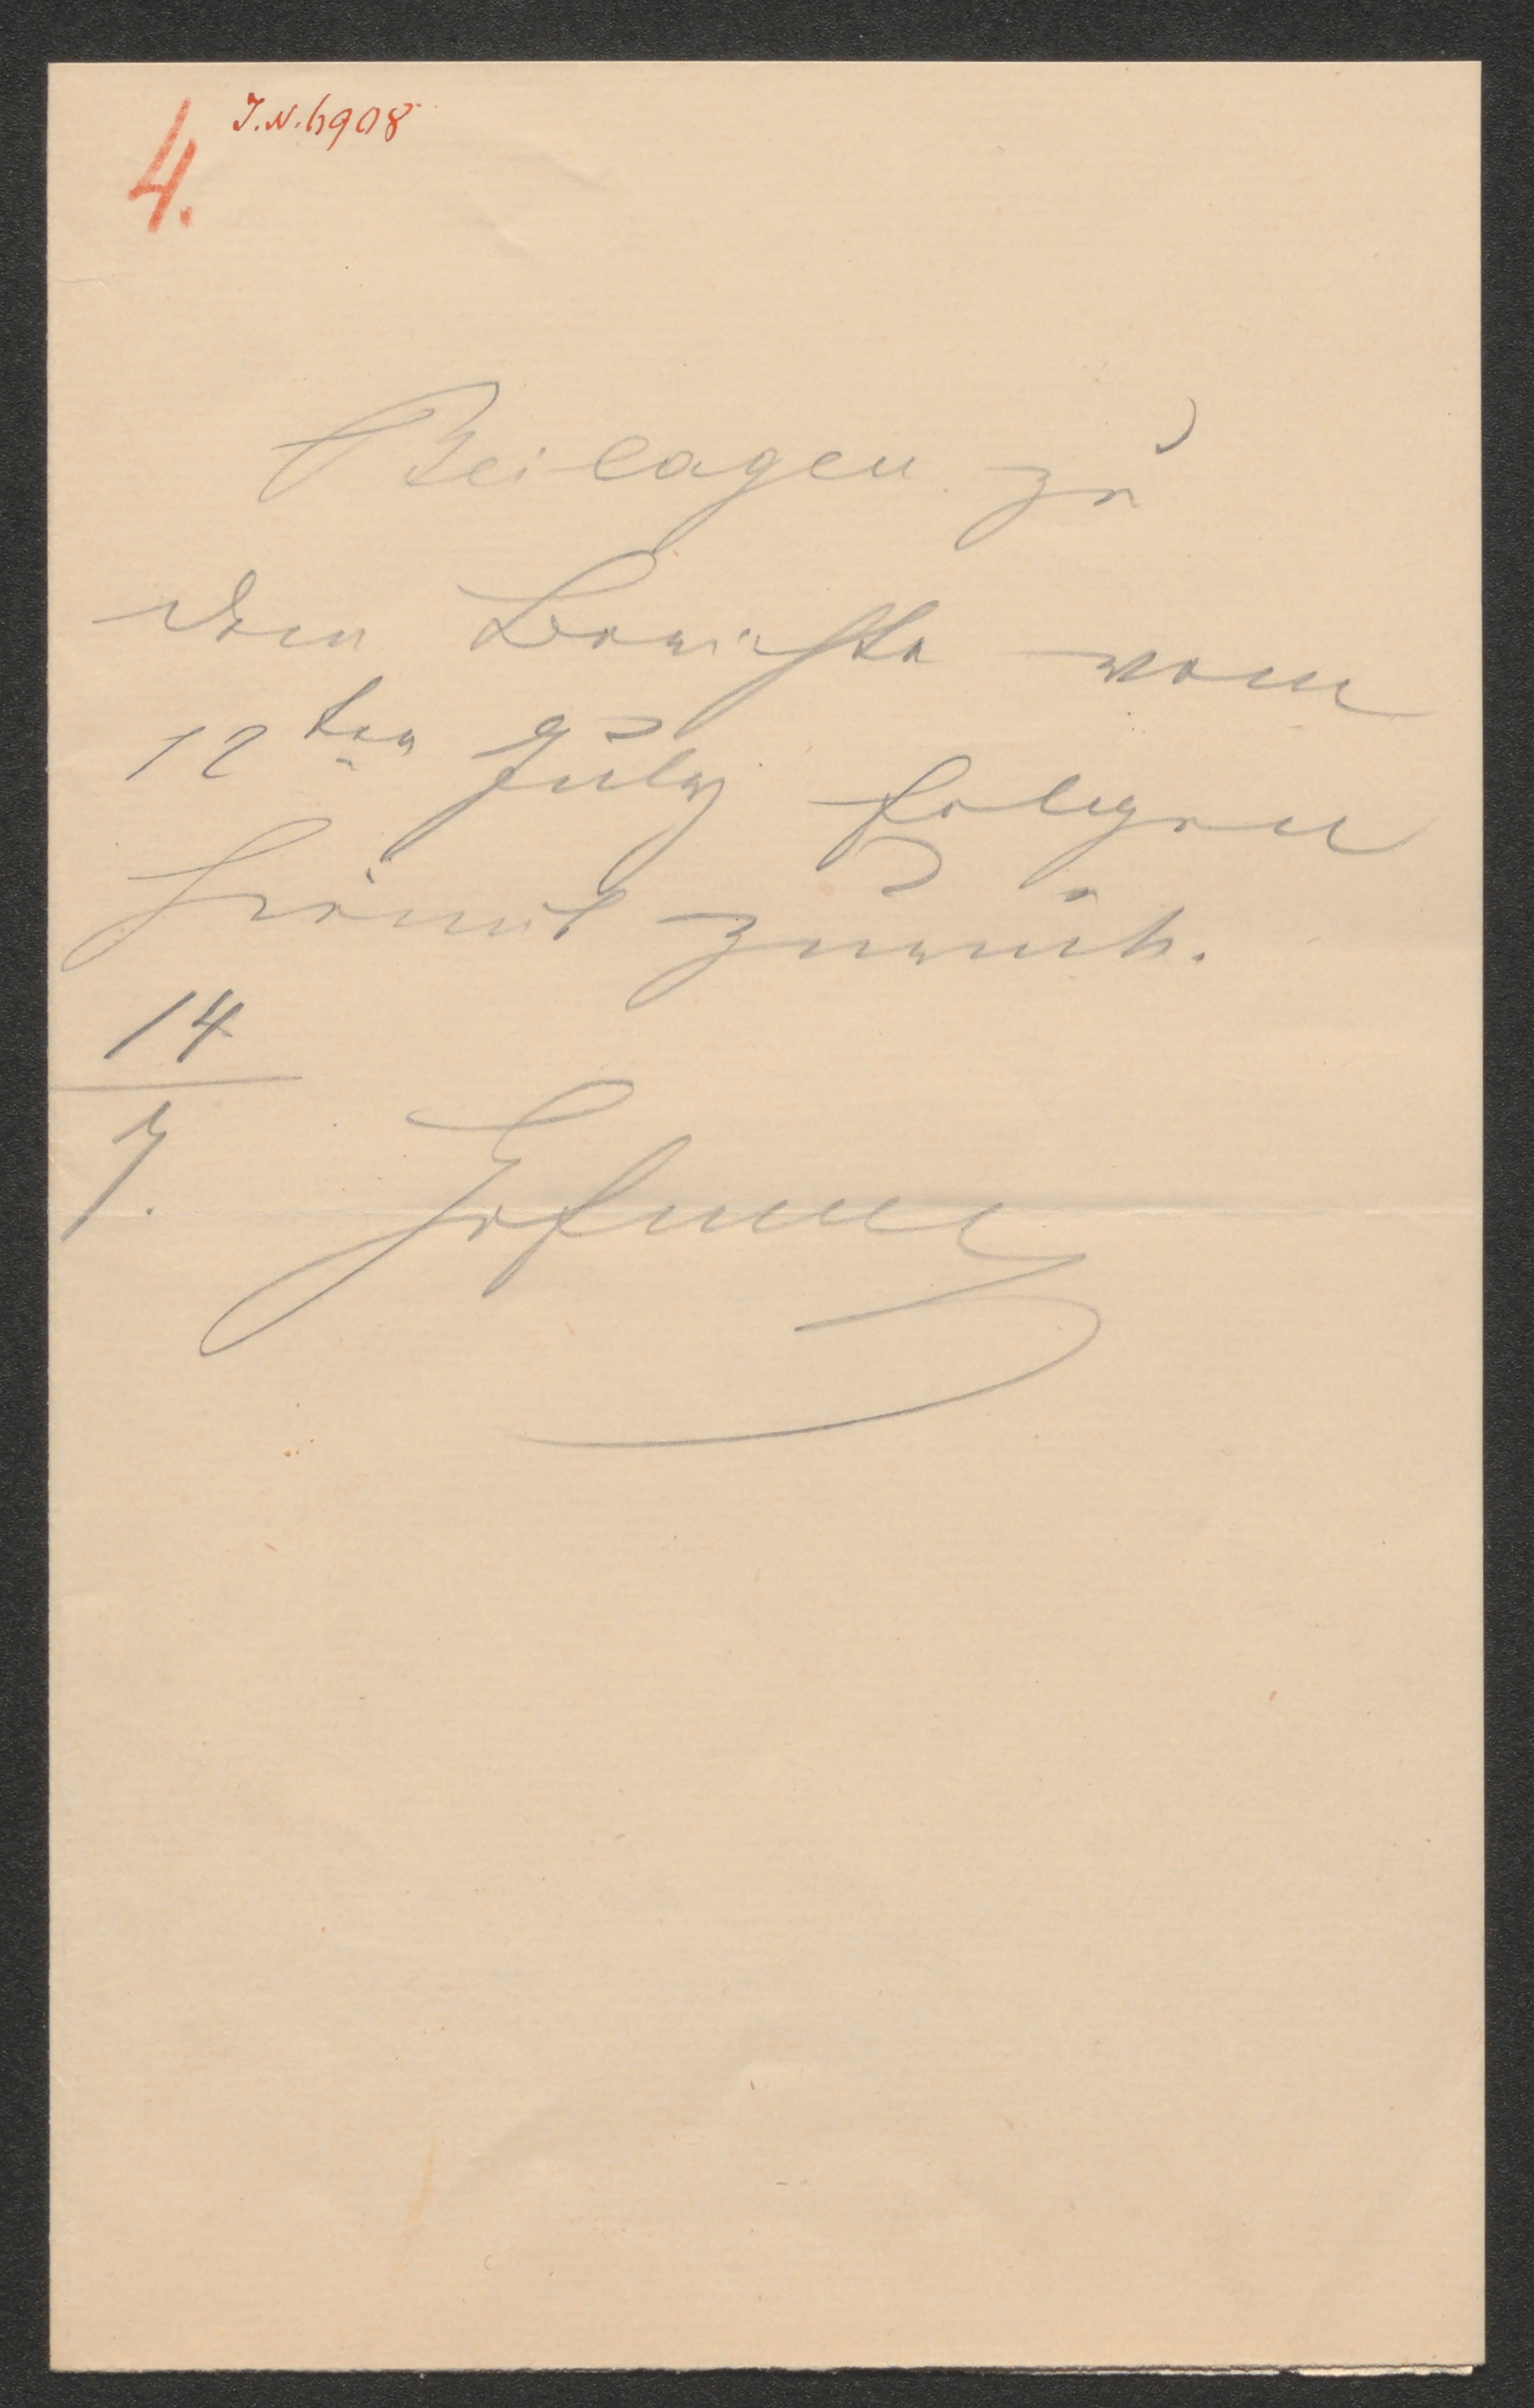 4. J.N. 6908
Beilagen zu
dem Berichte vom
12ten July folgen
hiemit zurück.
14
7.